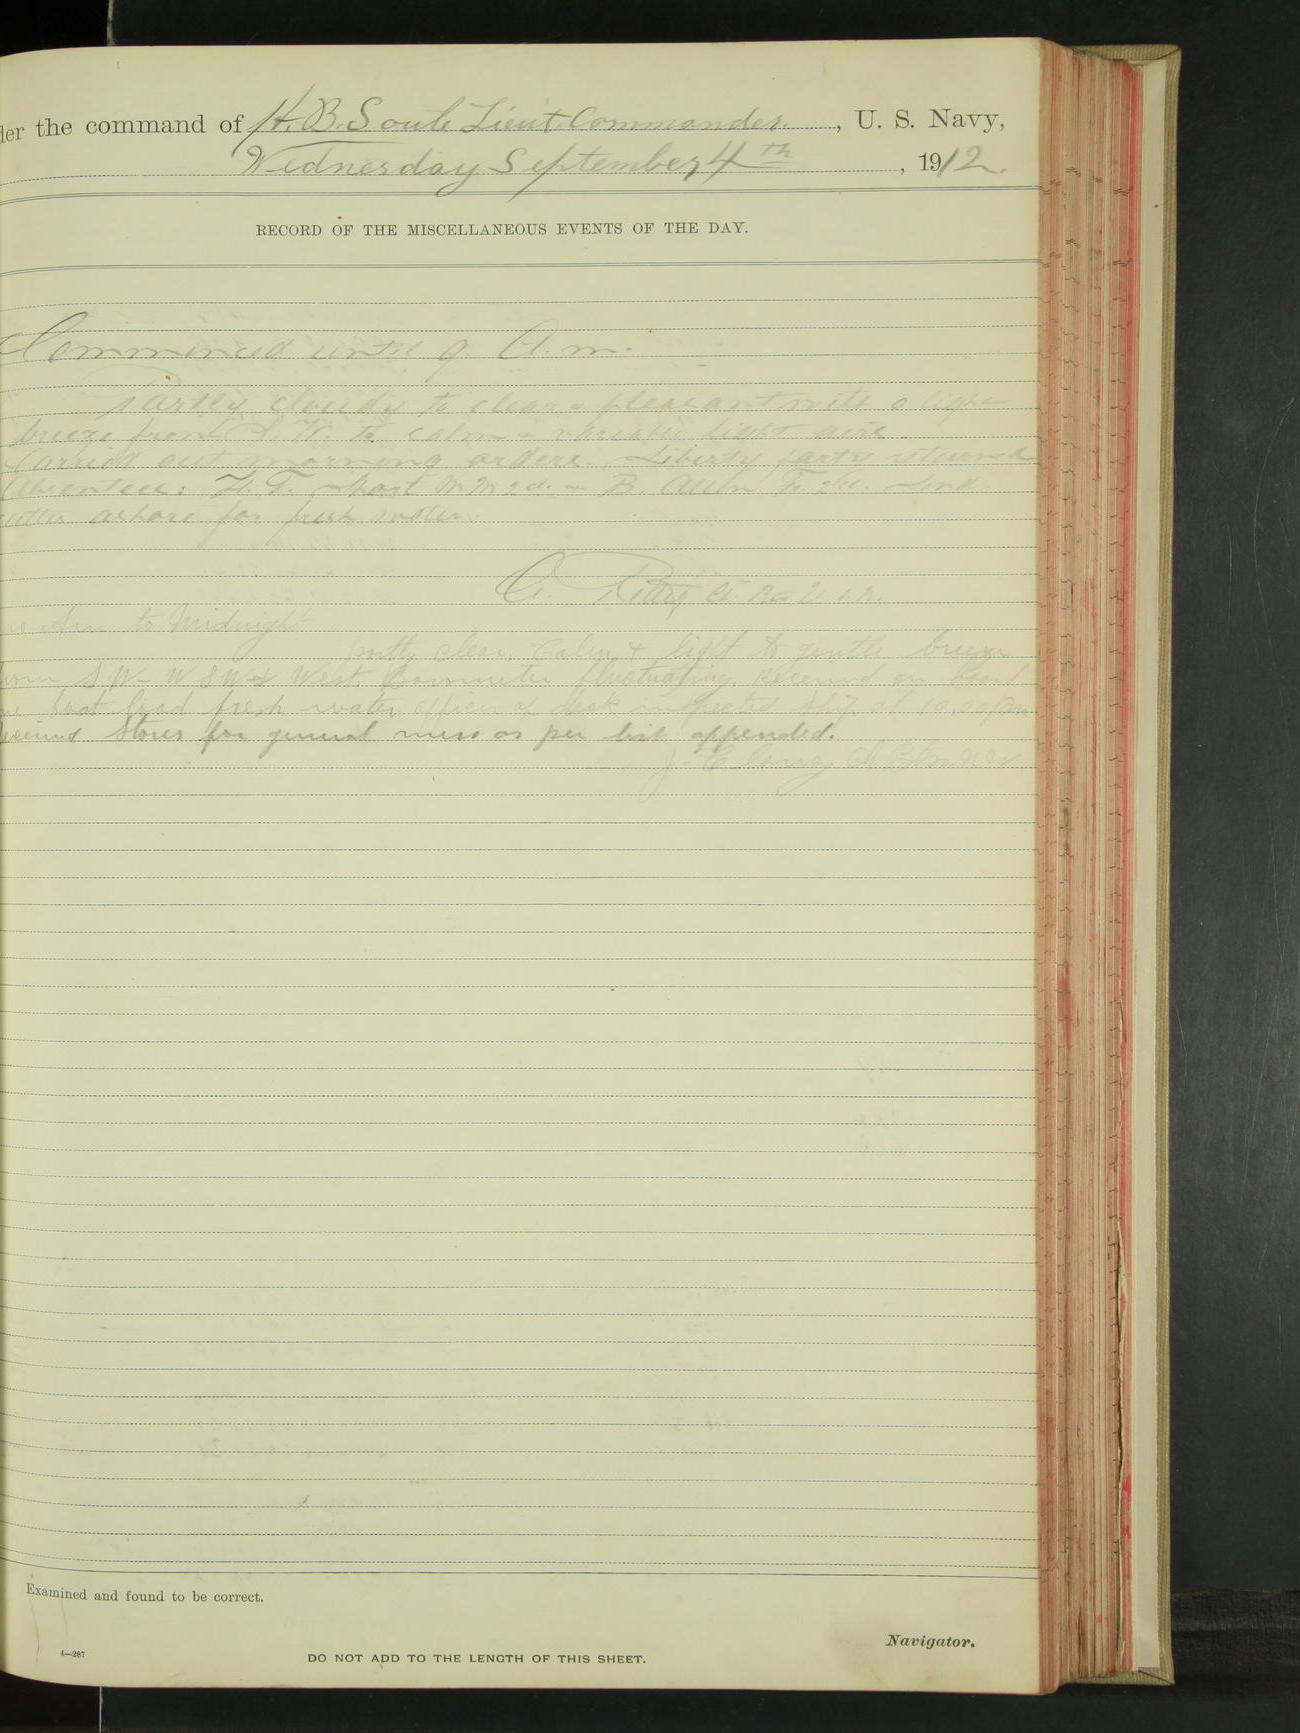 der the command of H. B. Soule Lieut. Commander. , U. S. Navy,
Wednesday September 4th , 1912.
RECORD OF THE MISCELLANEOUS EVENTS OF THE DAY.
Commenced until 9 A.m.
Partly cloudy to clear & pleasant with a light
breeze from S. W. to calm & variable light airs.
Carried out morning orders. Liberty party returned
Absentees: H. F. Short M M 2d. & B. Allen F. 2d. Send
cutter ashore for fresh water.
to Midnight
partly clear, Calm & light to gentle breeze
from SW - W S W & West. Barometer fluctuating. Received on board
one boat load fresh water, officer of deck inspected ship at
Received Stores for general mess as per list appended.
Examined and found to be correct.
Navigator.
4—287
DO NOT ADD TO THE LENGTH OF THIS SHEET.